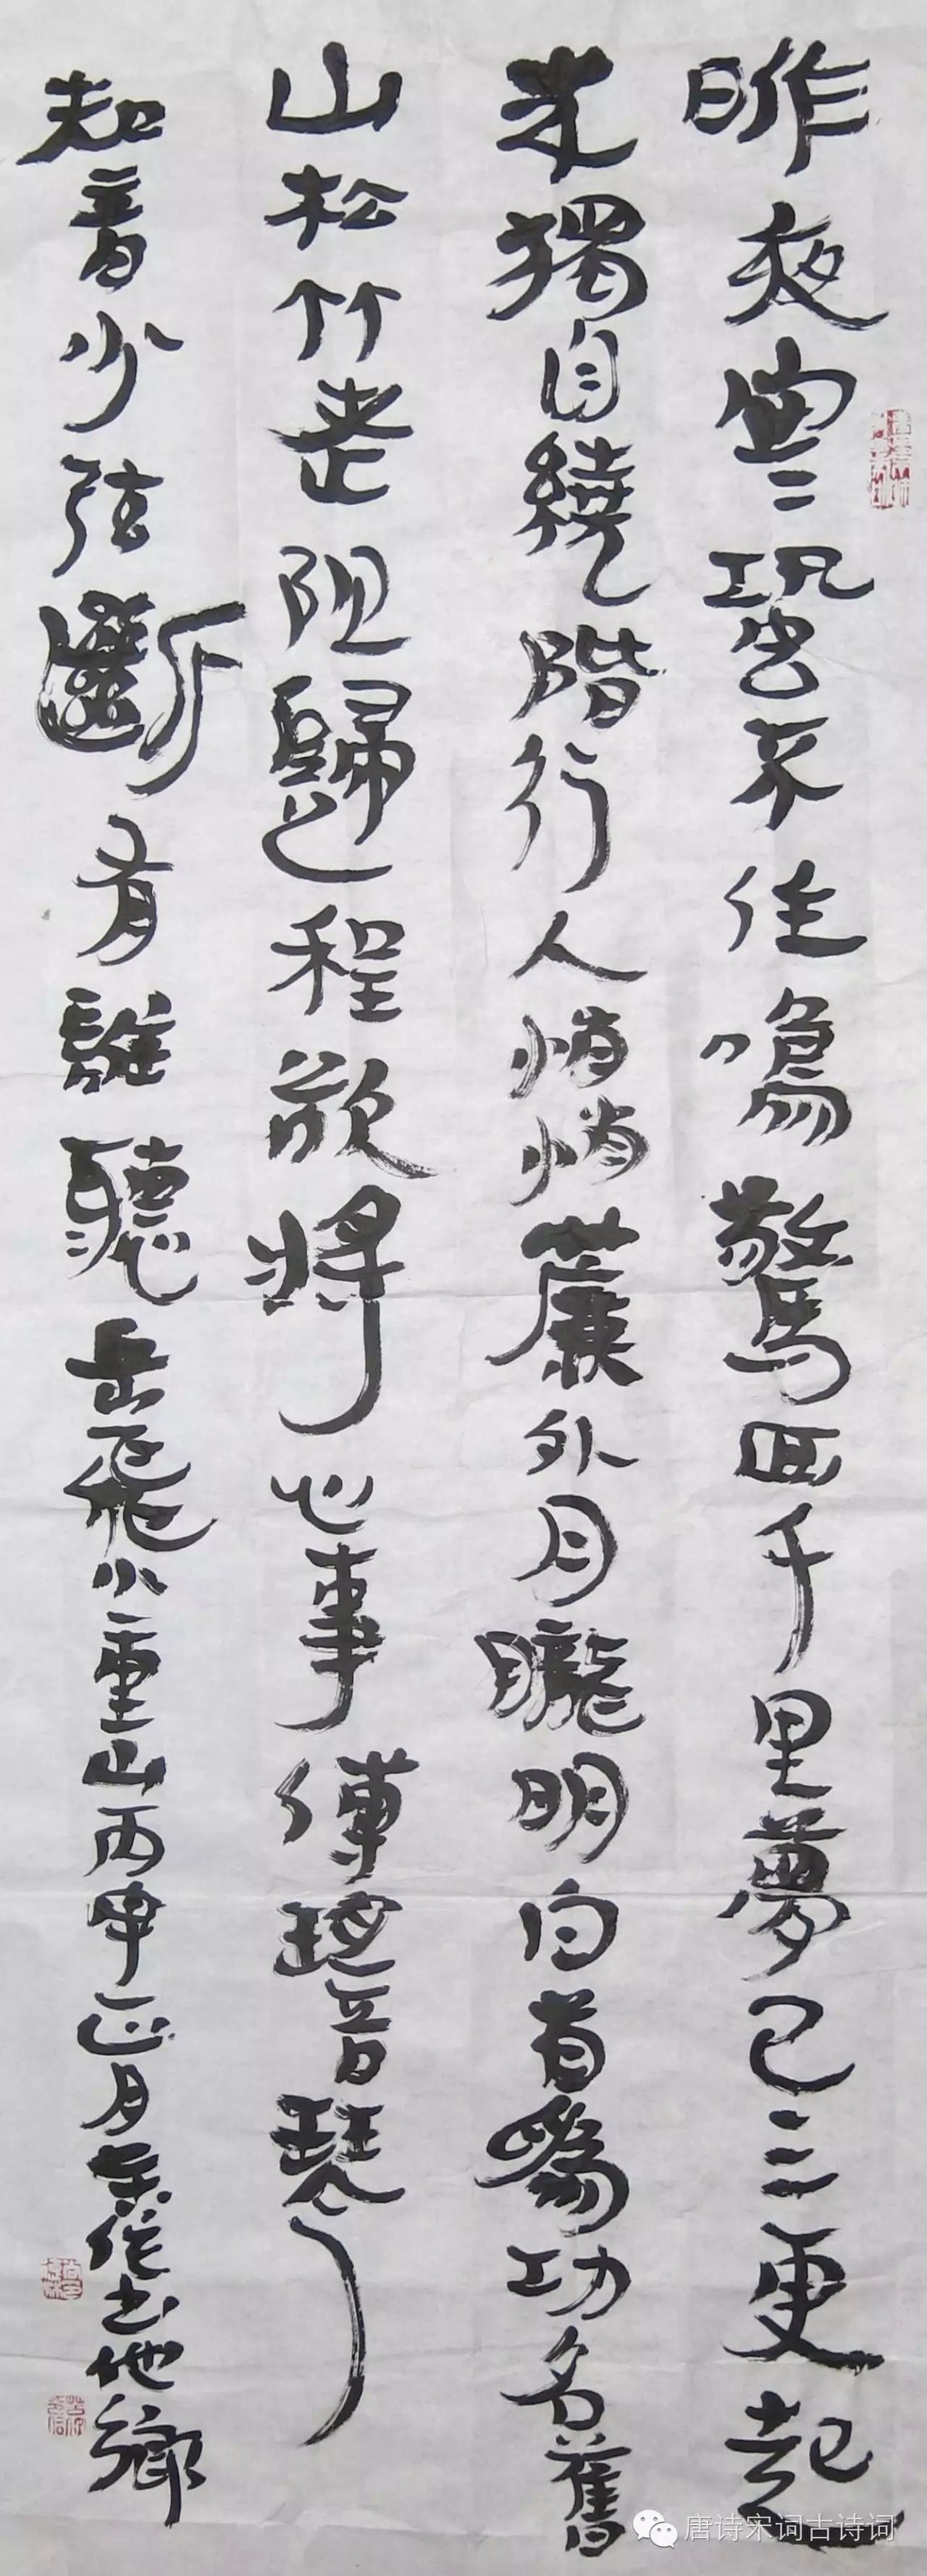 昨夜寒蛩不住鳴驚回千里夢已三更起
来獨自繞階行人悄悄簾外月朧明白首為功名舊
山松竹老阻歸程欲將心事付瑤琴
知音少弦斷有誰聽岳飛小重山丙申正月書他鄉
唐诗宋词古诗词